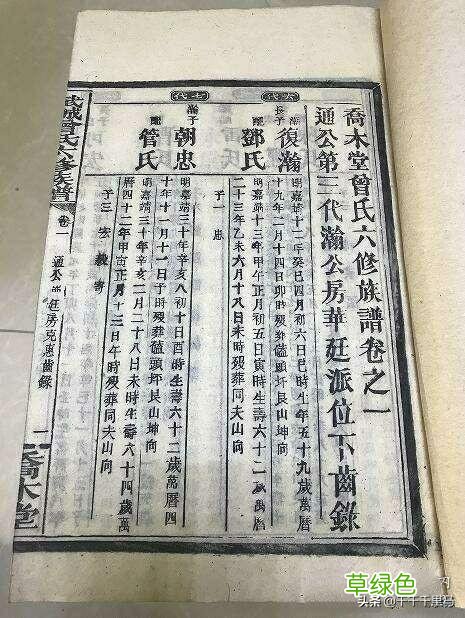 喬木堂曾氏六修族譜卷之一
通公第二代瀚公房華廷派位下齒錄
瀚長子
復瀚
明嘉靖十二年癸巳四月初一日卯時生年五十九歲萬曆
十九年二月十四日卯時歿葬磕頭坵艮山坤向
配
鄧氏
明嘉靖十三年甲午正月初五日寅時生壽六十二歲萬曆
二十三年乙未六月十八日未時歿葬同夫山向
子一 忠
瀚子
朝忠
明嘉靖三十年辛亥八月初十日酉時生壽六十二歲萬曆四
十年十二月十一日子時歿葬磕頭坵艮山坤向
配
管氏
明嘉靖三十年辛亥二月二十八日未時生壽六十四歲萬
曆四十二年甲寅正月十三日午時歿葬同夫山向
子三 宏
武城曾氏六修族譜
卷一
通公
房克惠齒錄
一
喬木堂
草绿色
头条@千千千里马